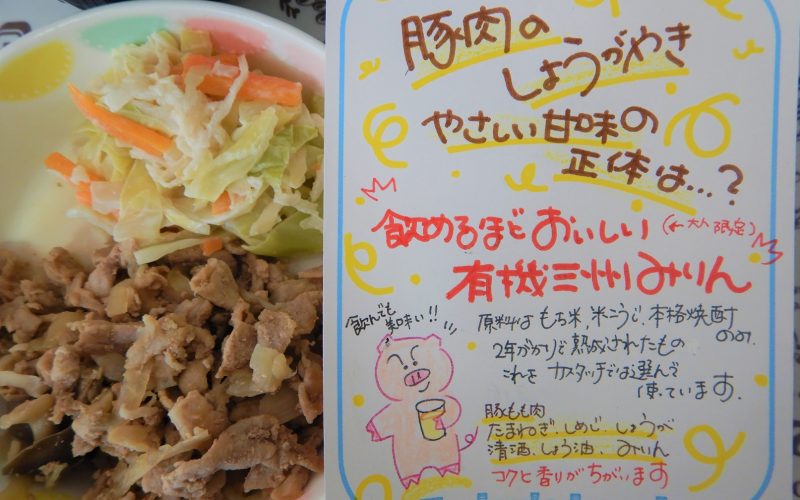 豚肉の
しょうがやき
やさしい甘味の
正体は…?
飲めるほどおいしい(←大人限定)
有機三州みりん
飲んでも
美味い!!
原料はもち米、米こうじ、本格焼酎
のみ。
2年がかりで熟成されたもの
これをカスタッチでは選んで
使っています。
豚もも肉
たまねぎ、しめじ、しょうが
清酒、しょう油、みりん
コクと香りがちがいます